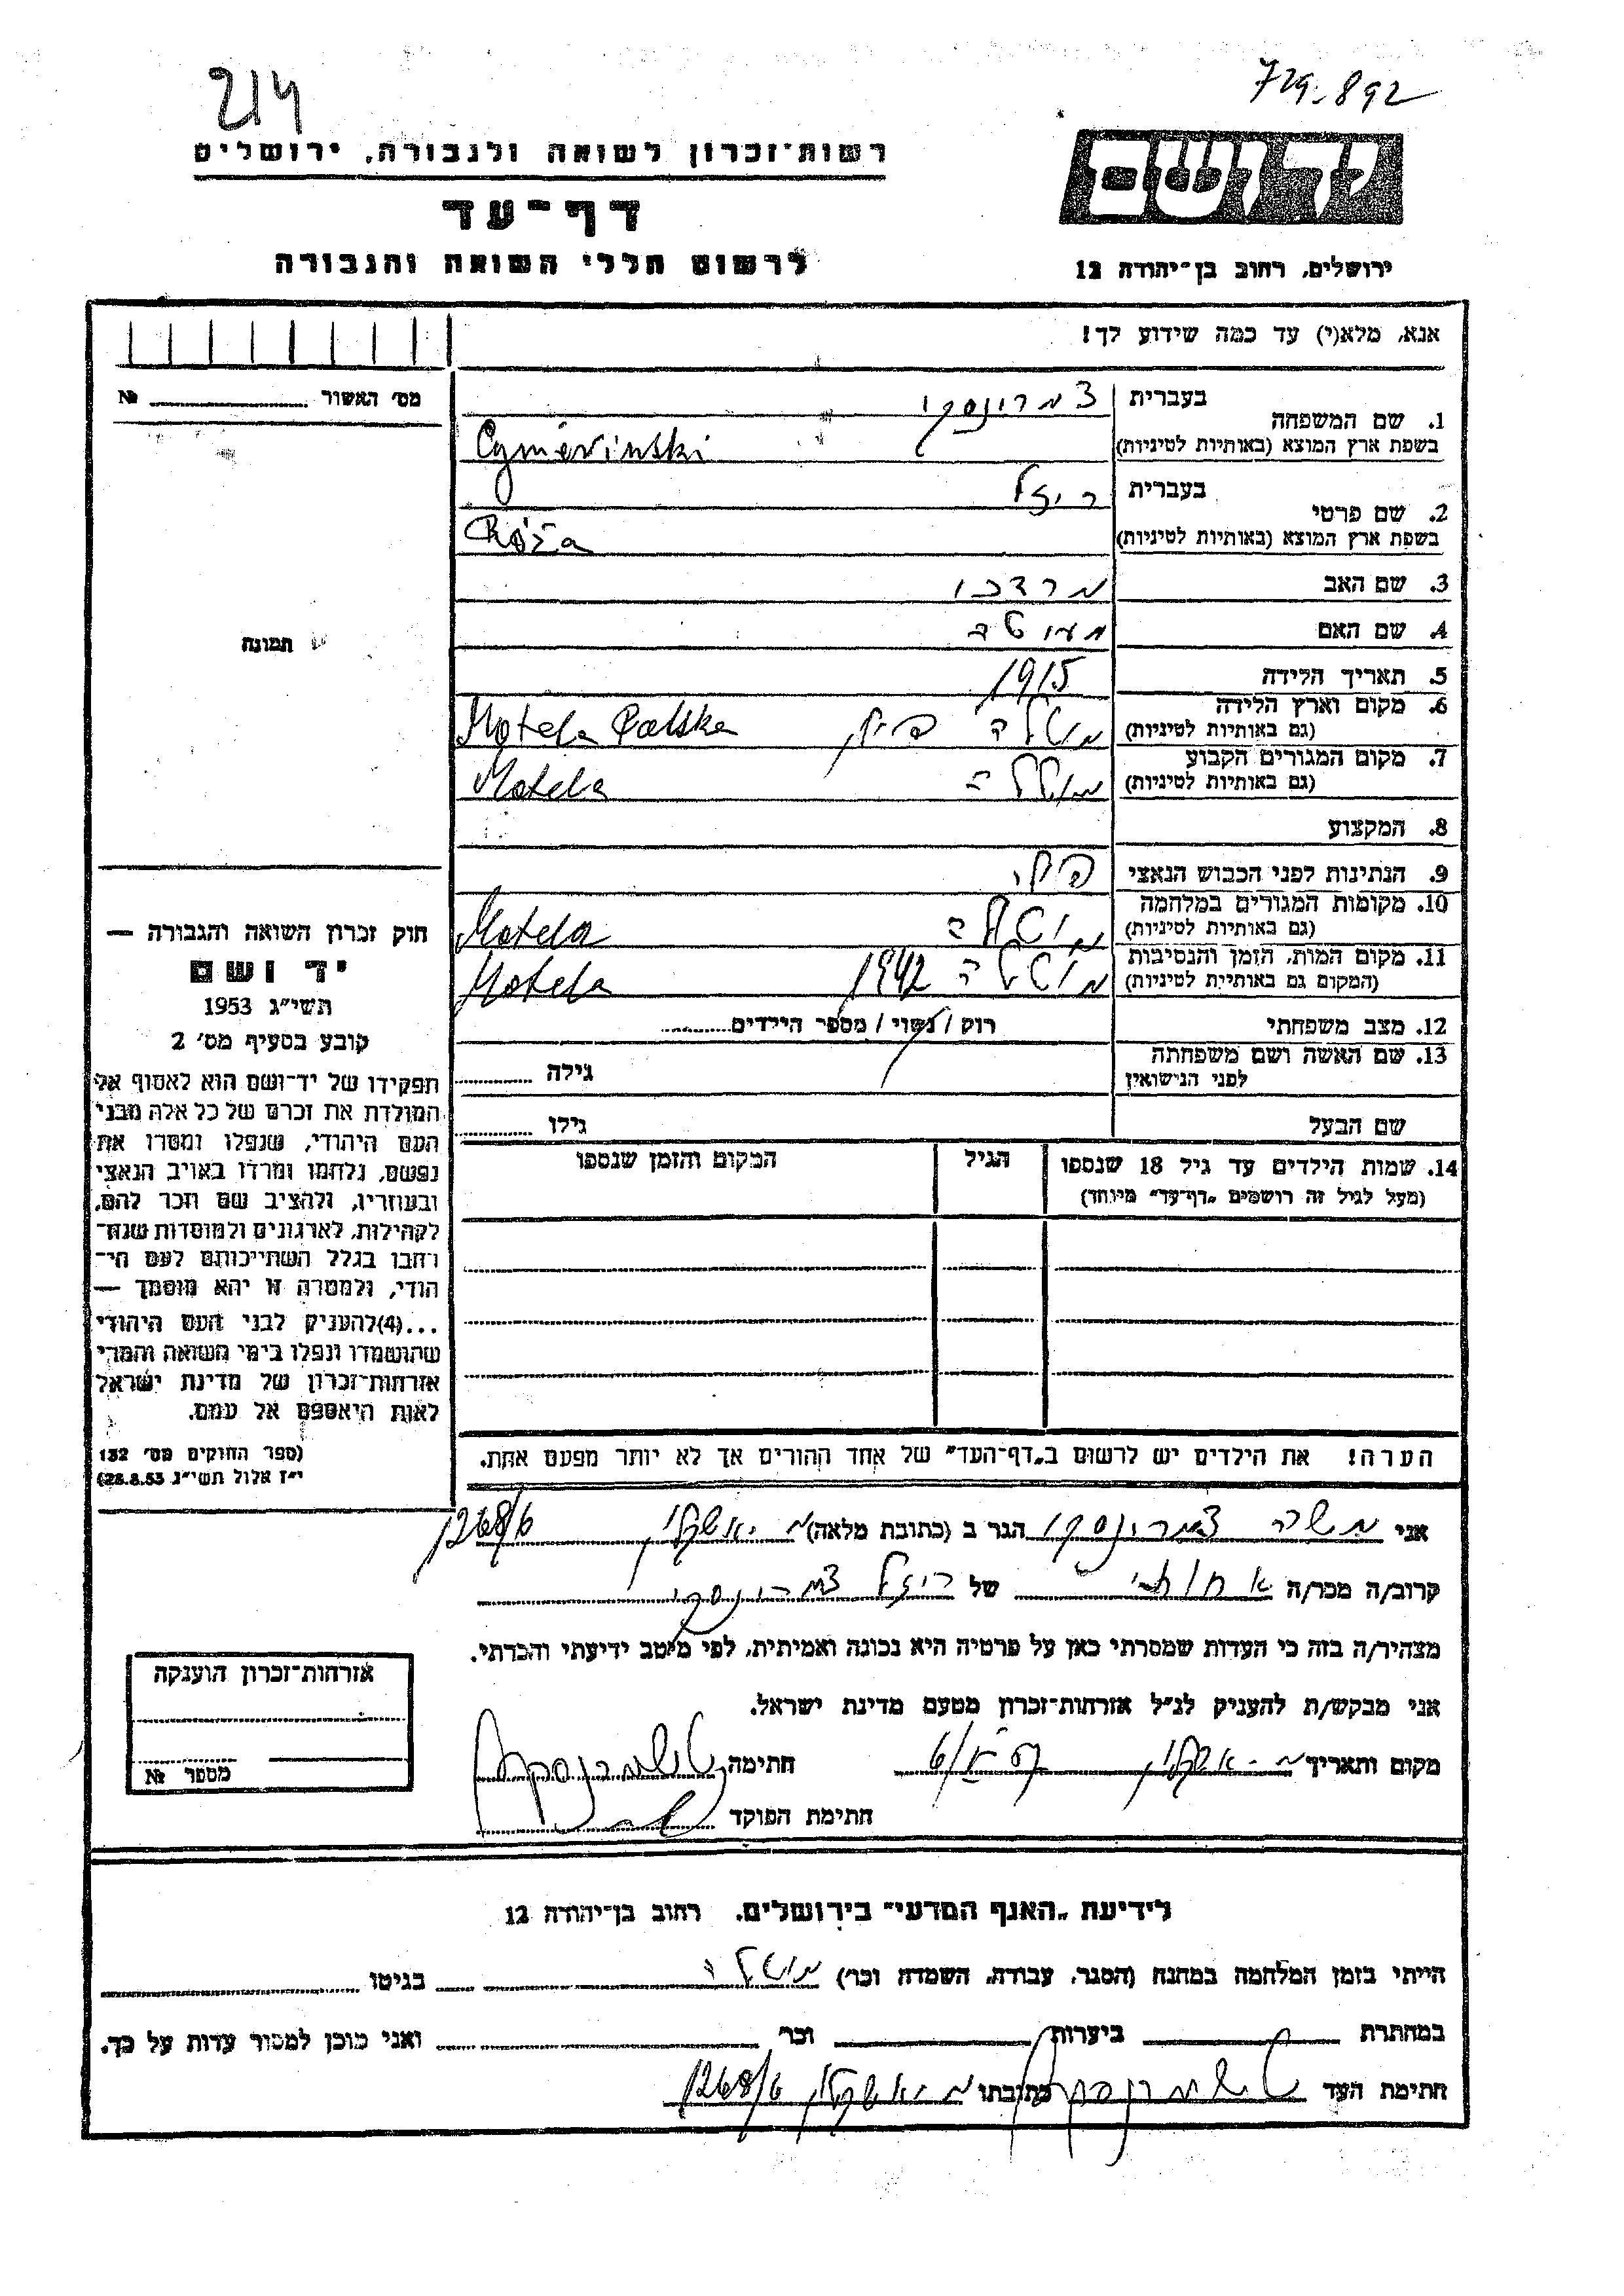 214
729-892
רשות־זכרון לשואה ולגבורה, ירושלים
דף־עד
לרשום חללי השואה והגבורה
יד ושם
ירושלים, רחוב בן־יהודה 12
אנא, מלא(י) עד כמה שידוע לך!
מס׳ האשור № ............
תמונה
1. שם המשפחה
בעברית צמרינסקי
בשפת ארץ המוצא (באותיות לטיניות) Cymerinski
2. שם פרטי
בעברית ריזל
בשפת ארץ המוצא (באותיות לטיניות) Róża
3. שם האב מרדכי
4. שם האם
5. תאריך הלידה 1915
6. מקום וארץ הלידה מוטלה פולין Motela Polska
(גם באותיות לטיניות)
7. מקום המגורים הקבוע מוטלה Motela
(גם באותיות לטיניות)
8. המקצוע
9. הנתינות לפני הכבוש הנאצי פולני
10. מקומות המגורים במלחמה מוטלה Motela
(גם באותיות לטיניות)
11. מקום המות, הזמן והנסיבות מוטלה 1942 Motela
(המקום גם באותיות לטיניות)
12. מצב משפחתי רוק / נשוי / מספר הילדים............
13. שם האשה ושם משפחתה גילה ............
לפני הנישואין
שם הבעל גילו ............
14. שמות הילדים עד גיל 18 שנספו הגיל המקום והזמן שנספו
(מעל לגיל זה רושמים „דף־עד״ מיוחד)
הערה! את הילדים יש לרשום ב„דף־העד״ של אחד ההורים אך לא יותר מפעם אחת.
חוק זכרון השואה והגבורה —
יד ושם
תשי״ג 1953
קובע בסעיף מס׳ 2
תפקידו של יד־ושם הוא לאסוף אל
המולדת את זכרם של כל אלה מבני
העם היהודי, שנפלו ומסרו את
נפשם, נלחמו ומרדו באויב הנאצי
ובעוזריו, ולהציב שם וזכר להם,
לקהילות, לארגונים ולמוסדות שנח־
רחבו בגלל השתייכותם לעם הי־
הודי, ולמטרה זו יהא מוסמך —
...(4)להעניק לבני העם היהודי
שהושמדו ונפלו בימי השואה והמרי
אזרחות־זכרון של מדינת ישראל
לאות היאספם אל עמם.
(ספר החוקים מס׳ 132
י״ז אלול תשי״ג 28.8.53)
אני משה צמרינסקי הגר ב (כתובת מלאה) מ-אשקלון 1268/6
קרוב/ה מכר/ה אחותי של ריזל צמרינסקי
מצהיר/ה בזה כי העדות שמסרתי כאן על פרטיה היא נכונה ואמיתית, לפי מיטב ידיעתי והכרתי.
אני מבקש/ת להעניק לנ״ל אזרחות־זכרון מטעם מדינת ישראל.
מקום ותאריך מ-אשקלון חתימה
חתימת הפוקד
אזרחות־זכרון הוענקה
מספר №
לידיעת „האגף המדעי״ בירושלים, רחוב בן־יהודה 12
הייתי בזמן המלחמה במחנה (הסגר, עבודה, השמדה וכר׳) מוטלה בגיטו
במחתרת ביערות וכר׳ ואני מוכן למסור עדות על כך.
חתימת העד כתובתו מ-אשקלון 1268/6